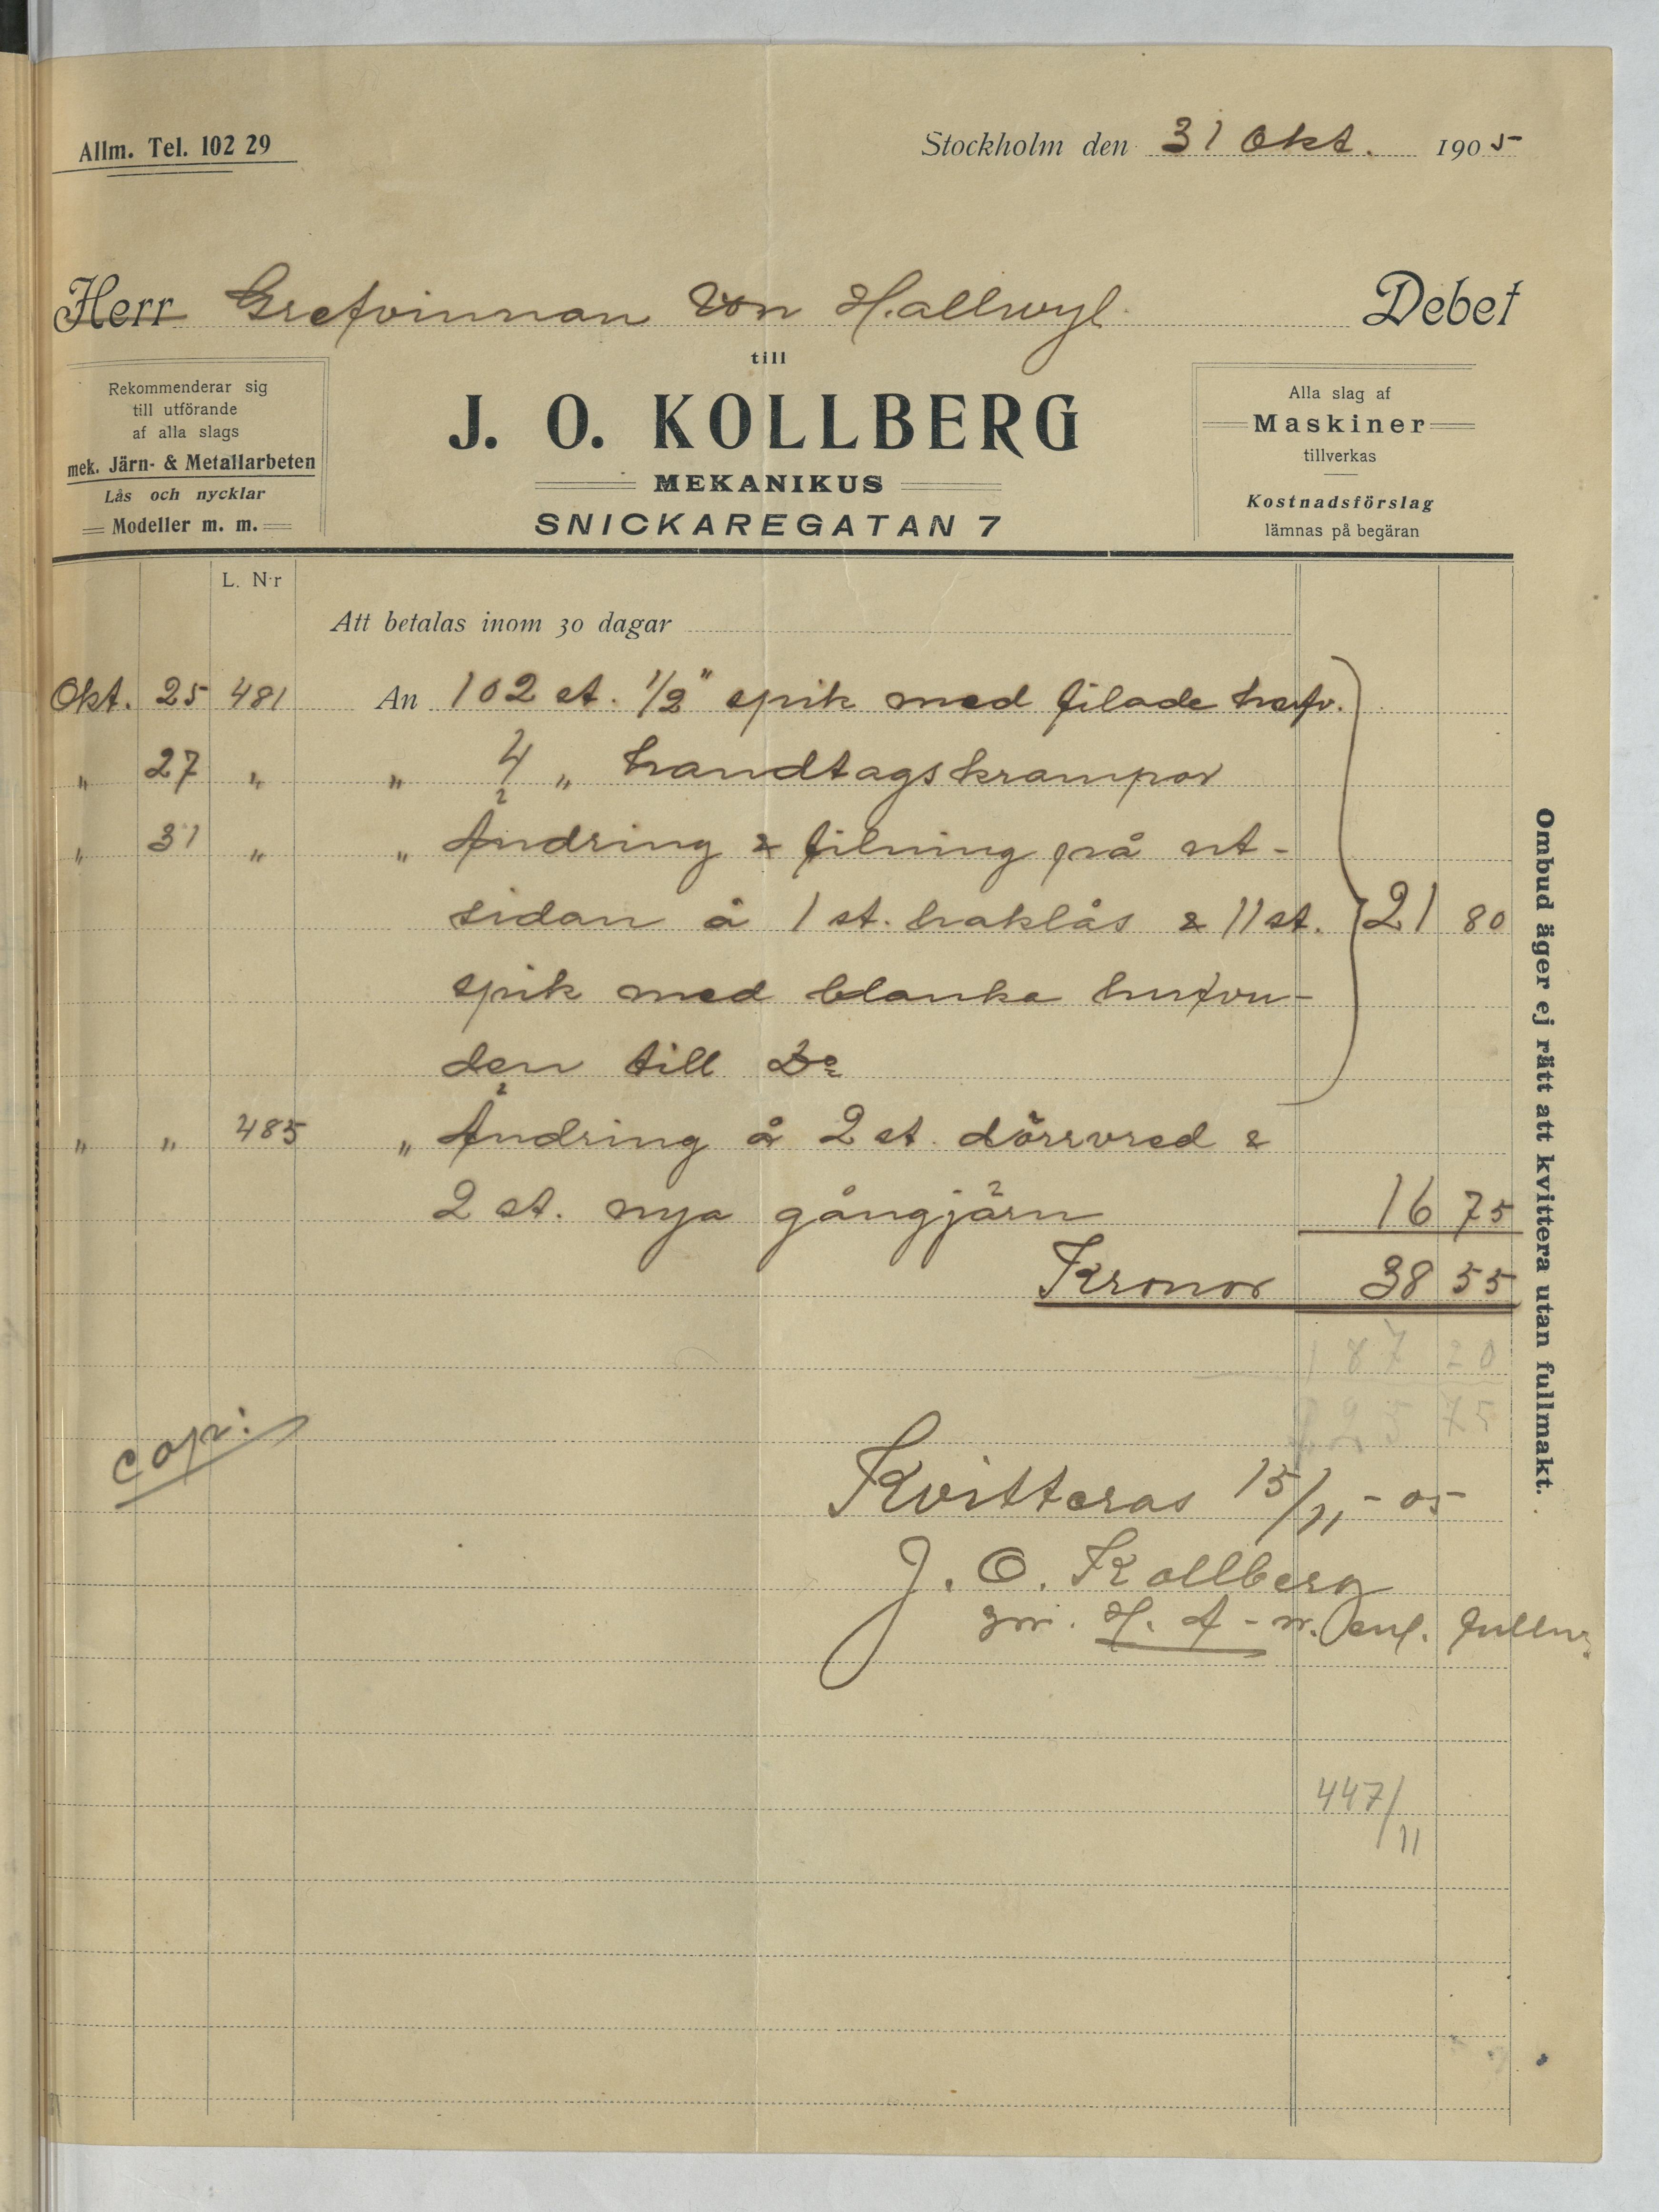 Allm. Tel. 102 29
Stockholm den 31 Okt. 1905
Herr Grefvinnan von Hallwyl Debet
till
Rekommenderar sig
till utförande
af alla slags
mek. Järn- & Metallarbeten
Lås och nycklar
Modeller m. m.
J. O. KOLLBERG
MEKANIKUS
SNICKAREGATAN 7
Alla slag af
Maskiner
tillverkas
Kostnadsförslag
lämnas på begäran
L. Nr
Att betalas inom 30 dagar
Okt. 25 481 An 102 st. 1/2" spik med filade hufv.
" 27 " " 4 " handtagskrampor
" 31 " " Ändring & filning på ut-
sidan å 1 st. haklås & 11 st. 21 80
spik med blanka hufvu-
den till Do
" " 485 " Ändring å 2 st. dörrvred &
2 st. nya gångjärn 16 75
Kronor 38 55
187 20
225 75
Copi:
Kvitteras 15/11 - 05
J. O. Kollberg
H. A - n. enl. fullm.
447/11
Ombud äger ej rätt att kvittera utan fullmakt.